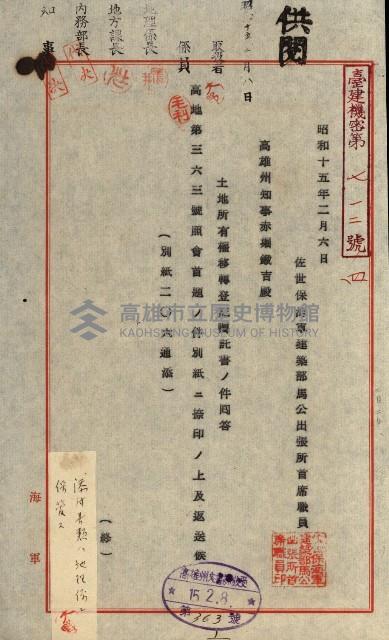 供閲
臺建機密第七一二號ノ四
昭和十五年二月六日
佐世保海軍建築部馬公出張所首席職員
高雄州知事赤堀鐵吉殿
土地所有權移轉登記囑託書ノ件囘答
高地第三六三號照會首題ノ件別紙ニ捺印ノ上及返送候
(別紙二〇六通添)
(終)
海軍
月八日
係員
地理係長
地方課長
內務部長
知事
毛利
高雄州
15.2.8.
第363號
高雄市立歷史博物館
KAOHSIUNG MUSEUM OF HISTORY